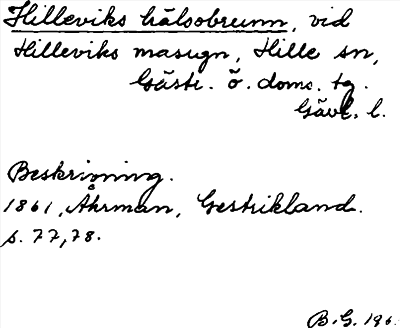 Hilleviks hälsobrunn, vid
Hilleviks masugn, Hille sn,
Gästr. ö. doms. tg.
Gävl. l.
Beskrivning.
1861, Åhrman, Gestrikland.
s. 77, 78.
B.G. 196